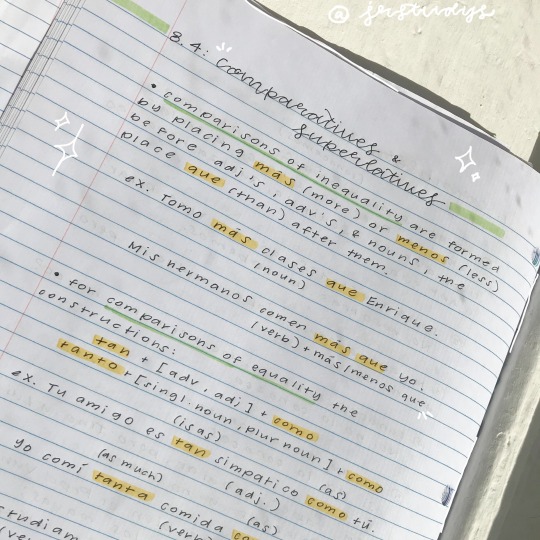 @ jrstudys
8.4: comparatives &
superlatives
• comparisons of inequality are formed
by placing más (more) or menos (less)
before adj's, adv's, & nouns, the
place que (than) after them.
ex. Tomo más clases que Enrique.
(noun)
Mis hermanos comen más que yo.
(verb) + más/menos que
• for comparisons of equality the
constructions:
tan + [adv, adj] + como
tanto + [singl. noun, plur noun] + como
ex. Tu amigo es tan simpatico como tú.
(is as) (adj.) (as)
yo comí tanta comida
(as much) (as)